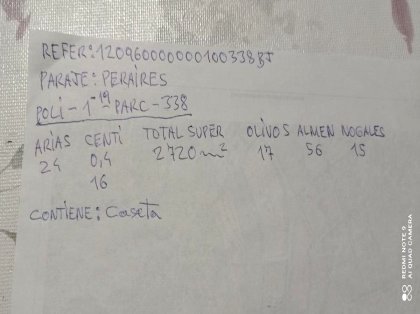 REFER: 12096000000100338BJ
PARAJE: PERAIRES
POLI - 1-19 PARC - 338
ARIAS CENTI TOTAL SUPER OLIVOS ALMEN NOGALES
24 0,4 2720 m² 17 56 15
16
CONTIENE: Caseta
REDMI NOTE 9
AI QUAD CAMERA